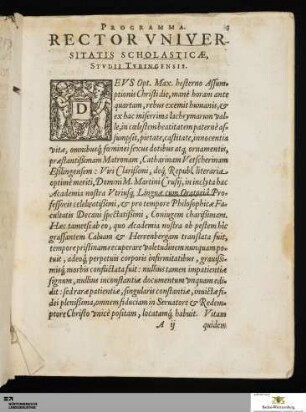 PROGRAMMA.
RECTOR VNIVER-
SITATIS SCHOLASTICÆ,
STVDII TVBINGENSIS.
DEVS Opt. Max. hesterno Assum-
ptionis Christi die, manè horam ante
quartam, rebus exemit humanis, &
ex hac miserrima lachrymarum val-
le, in cœlestem beatitatem paternè as-
sumpsit, pietate, castitate, innocentia
vitæ, omnibusq́ fœminei sexus dotibus atq́ ornamentis,
præstantissimam Matronam, Catharinam Vetscherinam
Esslingensem: Viri Clarissimi, deq́ Republ. literaria
optimè meriti, Domini M. Martini Crusij, in inclyta hac
Academia nostra Vtriusq́ Linguæ cum Oratoria Pro-
fessoris celeberrimi, & pro tempore Philosophicæ Fa-
cultatis Decani spectatissimi, Coniugem charissimam.
Hæc tametsi ab eo, quo Academia nostra ob pestem hîc
grassantem Calvam & Herrenbergam translata fuit,
tempore pristinam recuperare valetudinem nunquam po-
tuit, adeoq́ perpetuis corporis infirmitatibus, grauissi-
misq́ morbis conflictata fuit: nullius tamen impatientiæ
signum, nullius inconstantiæ documentum vnquam edi-
dit: sed raræ patientiæ, singularis constantiæ, inuictæ fi-
dei plenissima, omnem fiduciam in Seruatore & Redem-
ptore Christo vnicè positam, locatamq́ habuit. Vitam
A ij quidem